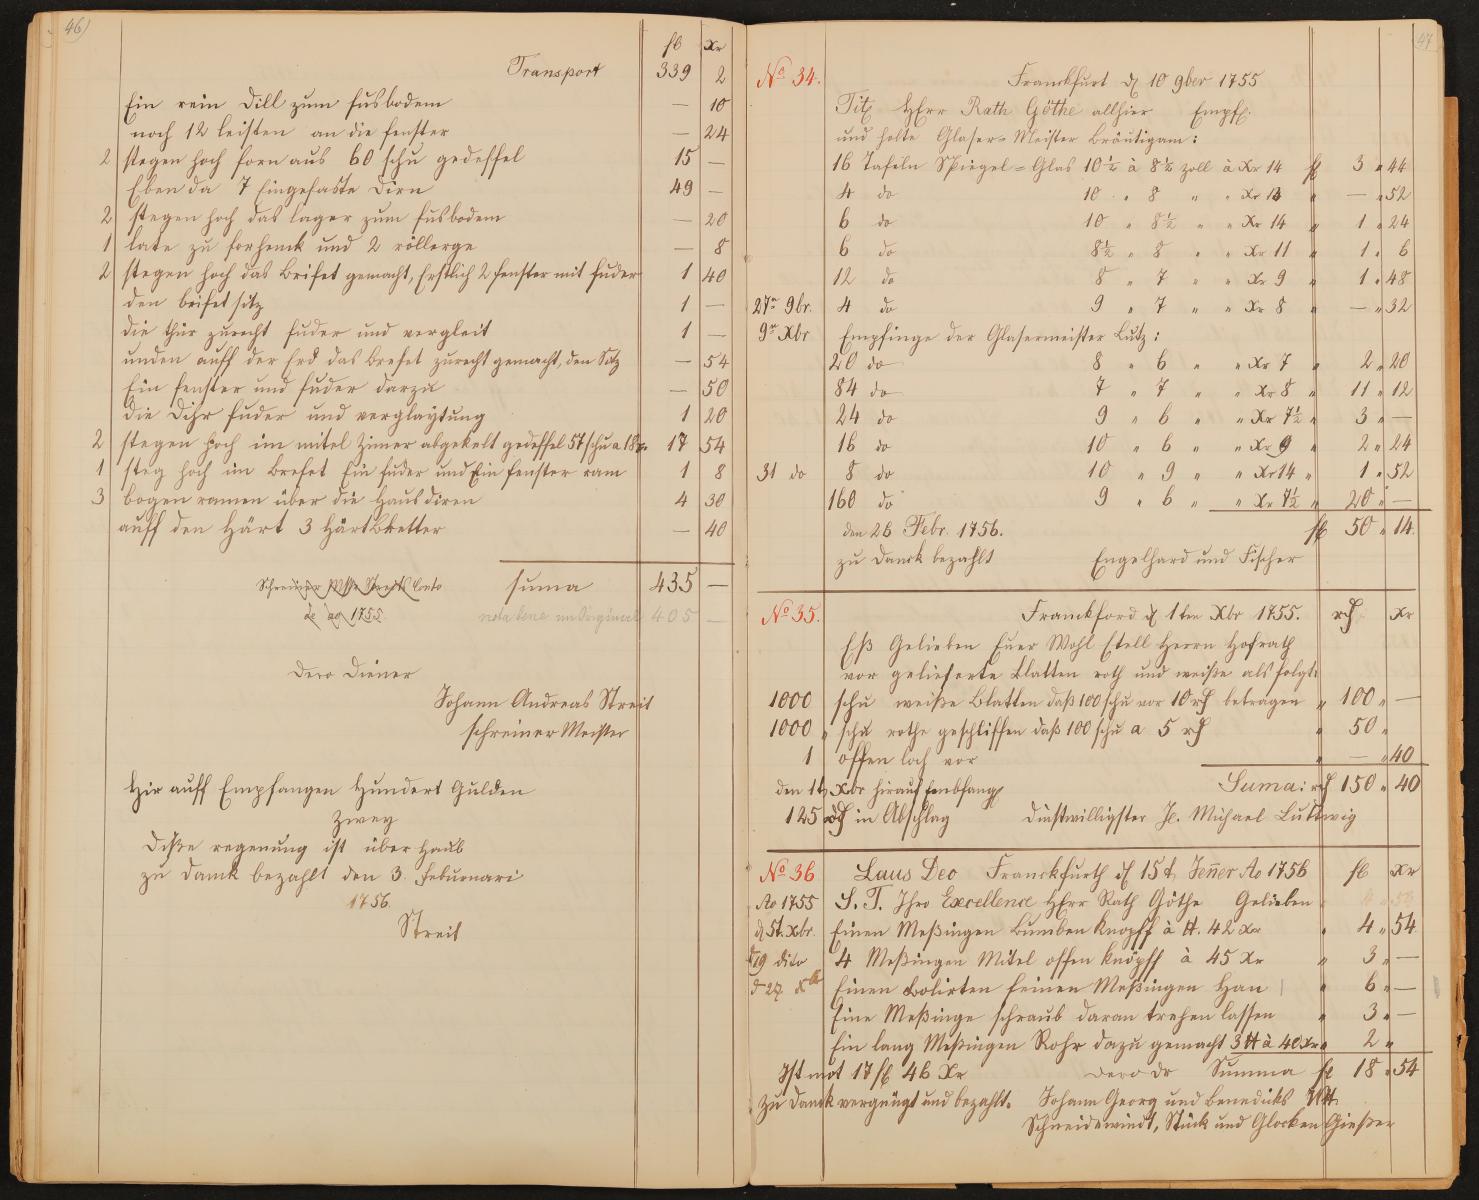 46)
fl Xr
Transport 339 2
Ein rein Dill zum fusbodem — 10
noch 12 leisten an die fenster — 24
2 stegen hoch forn aus 60 schu gedeffel 15 —
Eben da 7 Eingefaste Diren 49 —
2 stegen hoch das lager zum fusbodem — 20
1 late zu forhenck und 2 röllerge — 8
2 stegen hoch das Brifet gemacht, Erstlich 2 fenster mit fuder 1 40
den brifet sitz 1 —
die thür zurecht fuder und vergleit 1 —
unden auff der Erd das Brefet zurecht gemacht, den Sitz — 54
Ein fenster und fuder darzu — 50
die Dihr fuder und verglaytung 1 20
2 stegen hoch im mitel Zimer abgekelt gedeffel 57 schu a 18 Xr. 17 54
1 steg hoch im Brefet Ein fuder und Ein fenster ram 1 8
3 bogen ramen über die Haus diren 4 30
auff den Härt 3 Härtbretter — 40
suma 435 —
Schreiner Conto
de ao 1755
nota bene im Original 405 —
Dero Diener
Johann Andreas Streit
schreiner Meister
Hir auff Empfangen Hundert Gulden
zwey
Diße regenung ist über haub
zu danck bezahlt den 3. Februari
1756.
Streit
47
No 34. Franckfurt d 10 9ber 1755
Tit HErr Rath Göthe allhier Empf.
und holte Glaser-Meister Bräutigam:
16 Tafeln Spiegel-Glas 10½ à 8½ zoll à Xr 14 fl 3 " 44
4 do 10 " 8 " " Xr 13 " — " 52
6 do 10 " 8½ " " Xr 14 " 1 " 24
6 do 8½ " 8 " " Xr 11 " 1 " 6
12 do 8 " 7 " " Xr 9 " 1 " 48
27n 9br. 4 do 9 " 7 " " Xr 8 " — " 32
9n Xbr Empfinge der Glasermeister Lutz:
20 do 8 " 6 " " Xr 7 " 2 " 20
84 do 7 " 7 " " Xr 8 " 11 " 12
24 do 9 " 6 " " Xr 7½ " 3 " —
16 do 10 " 6 " " Xr 9 " 2 " 24
31 do 8 do 10 " 9 " " Xr 14 " 1 " 52
160 do 9 " 6 " " Xr 7½ " 20 " —
den 26 Febr. 1756. fl 50 " 14
zu danck bezahlt Engelhard und Fischer
No 35. Franckford d 1ten Xbr 1755. Xr
Eß Gelieben Euer Wohl Etell Herrn Hofrath
vor gelieferte Blatten roth und weiße als folgt:
1000 schu weiße Blatten daß 100 schu vor 10 betragen " 100 " —
1000 " schu rothe geschliffen daß 100 schu a 5 " 50 "
1 offen loch vor " — " 40
Suma: 150 " 40
den Xbr hirauf Embfang
125 in Abschlag Dinstwilligster Michael Ludtwig
No 36 Laus Deo Franckfurth d 15t. Jenner Ao 1756 fl Xr
Ao 1755 S. T. Ihro Excellence HErr Rath Göthe Gelieben
d 5t. Xbr. Einen Meßingen Bumben Knopff à tt. 42 Xr " 4 " 54
d 19 dito 4 Meßingen Mitel offen knöpff à 45 Xr " 3 " —
d 27 Einen Bolirten feinen Meßingen Han " 6 " —
Eine Meßinge schraub daran trehen lassen " 3 " —
Ein lang Meßingen Rohr dazu gemacht 3 tt à 40 Xr " 2 "
Ist mit 17 fl 46 Xr Dero Dr Summa fl 18 " 54
zu danck vergnügt und bezahlt. Johann Georg und Benedicks
Schneidewindt, Stück und Glocken Gießer